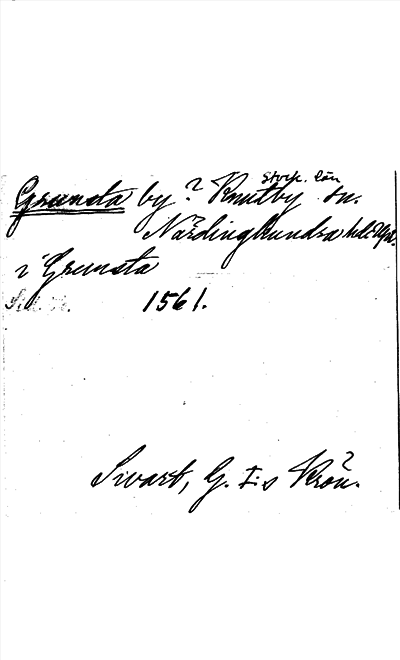 Stock. län
Grunsta by? Knutby sn.
Närdinghundra hd. Upl.
i Grunsta
1561.
Sivart, G. I:s Krön.